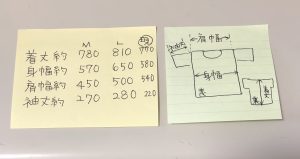 M L
着丈約 780 810 770
身幅約 570 650 580
肩幅約 450 500 540
袖丈約 270 280 220
肩幅
身幅